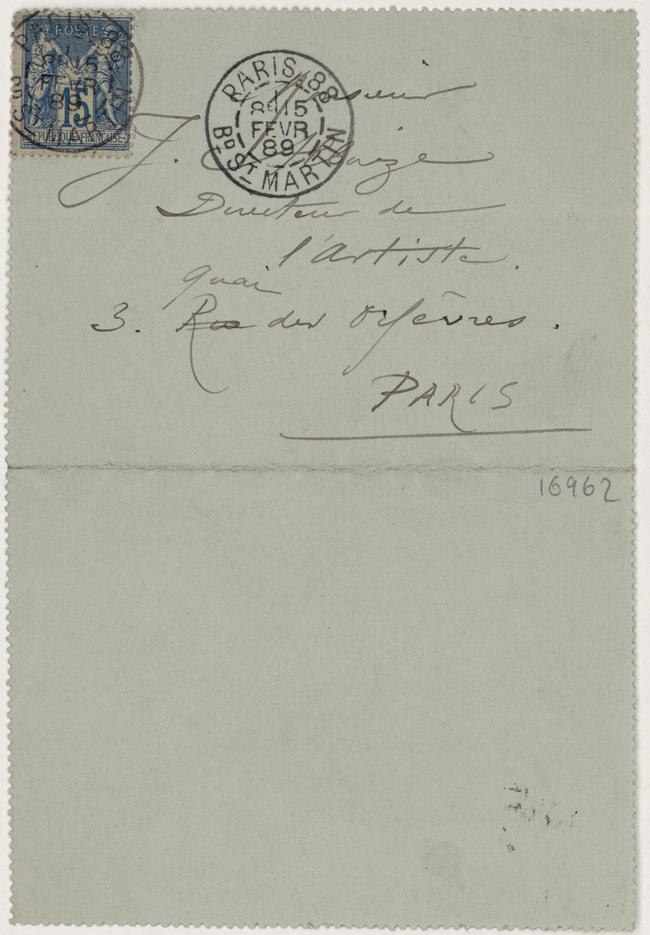 POSTES
15
REPUBLIQUE FRANÇAISE
PARIS 88
8E 15
FEVR
89
BD ST MARTIN
Monsieur
J.
Directeur de
l'Artiste.
quai
3. Rue des Orfèvres.
PARIS
16962